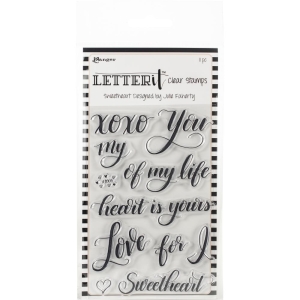 Ranger
LETTERit™ Clear Stamps
Sweetheart Designed by Julie Flaherty
xoxo You
my of my life
heart is yours
Love for I
Sweetheart